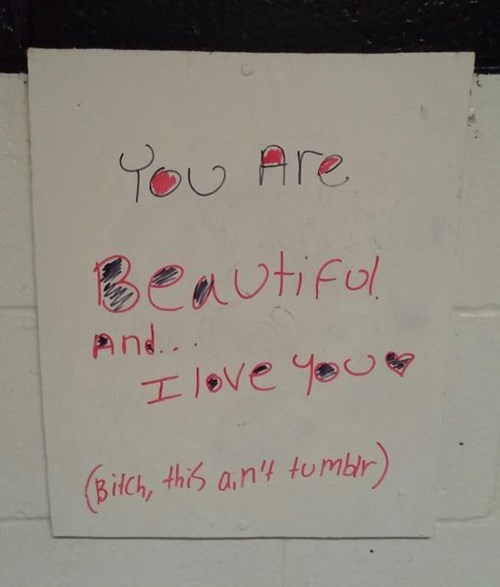 You Are
Beautiful
And...
I love you ♥
(Bitch, this ain't tumblr)